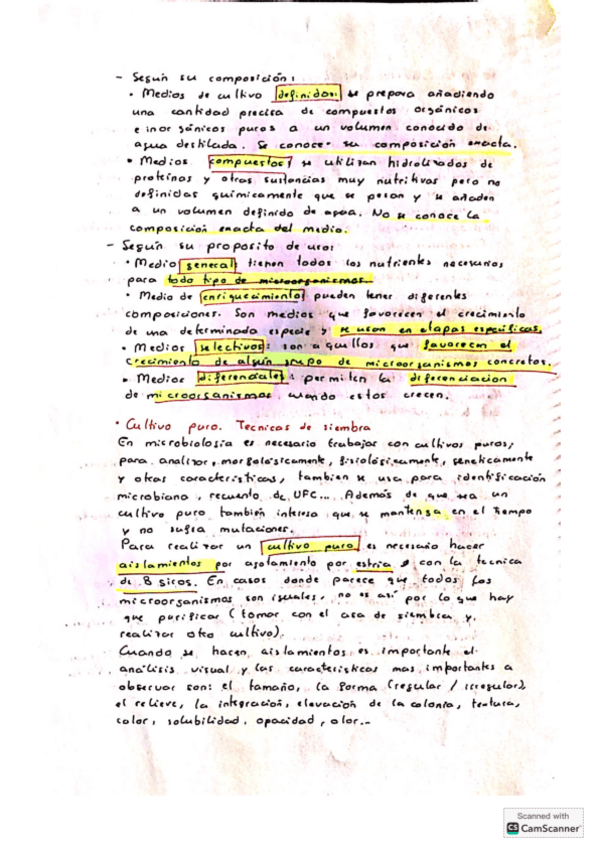 - Según su composición:
• Medios de cultivo definidos: se prepara añadiendo
una cantidad precisa de compuestos orgánicos
e inorgánicos puros a un volumen conocido de
agua destilada. Se conoce su composición exacta.
• Medios compuestos: se utilizan hidrolizados de
proteínas y otras sustancias muy nutritivas pero no
definidas químicamente que se pesan y se añaden
a un volumen definido de agua. No se conoce la
composición exacta del medio.
- Según su proposito de uso:
• Medio general: tienen todos los nutrientes necesarios
para todo tipo de microorganismos.
• Medio de enriquecimiento: pueden tener diferentes
composiciones. Son medios que favorecen el crecimiento
de una determinada especie y se usan en etapas específicas.
• Medios selectivos: son aquellos que favorecen el
crecimiento de algún grupo de microorganismos concretos.
• Medios diferenciales: permiten la diferenciacion
de microorganismos cuando estos crecen.
• Cultivo puro. Tecnicas de siembra
En microbiología es necesario trabajar con cultivos puros,
para analizar, morfológicamente, fisiológicamente, geneticamente
y otras características, tambien se usa para identificación
microbiana, recuento de UFC... Además de que sea un
cultivo puro también interesa que se mantenga en el tiempo
y no sufra mutaciones.
Para realizar un cultivo puro es necesario hacer
aislamientos por agotamiento por estria o con la tecnica
de 8 giros. En casos donde parece que todos los
microorganismos son iguales, no es así por lo que hay
que purificar (tomar con el asa de siembra y
realizar otro cultivo).
Cuando se hacen aislamientos es importante el
análisis visual y las características mas importantes a
observar son: el tamaño, la forma (regular / irregular),
el relieve, la integración, elevación de la colonia, textura,
color, solubilidad, opacidad, olor...
Scanned with
CS CamScanner